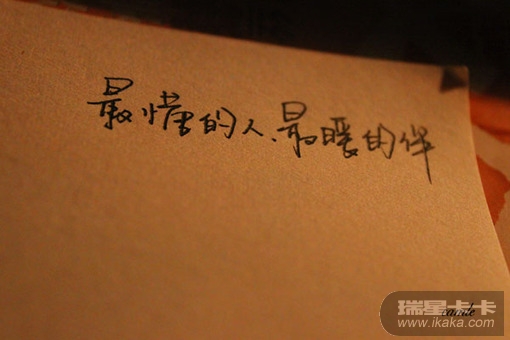 最懂的人、最暖的伴
瑞星卡卡
www.ikaka.com